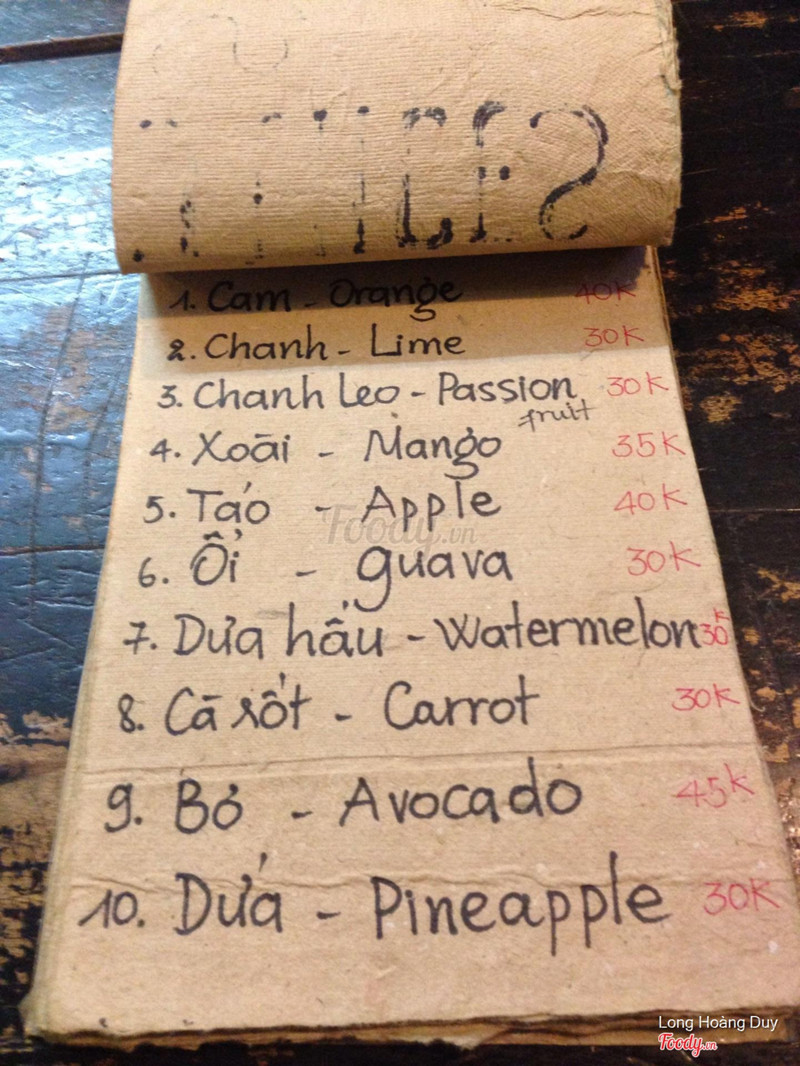 JUICES
1. Cam - Orange 40K
2. Chanh - Lime 30K
3. Chanh Leo - Passion fruit 30K
4. Xoài - Mango 35K
5. Táo - Apple 40K
6. Ổi - guava 30K
7. Dưa hấu - Watermelon 30K
8. Cà rốt - Carrot 30K
9. Bơ - Avocado 45K
10. Dứa - Pineapple 30K
Foody.vn
Long Hoàng Duy
Foody.vn